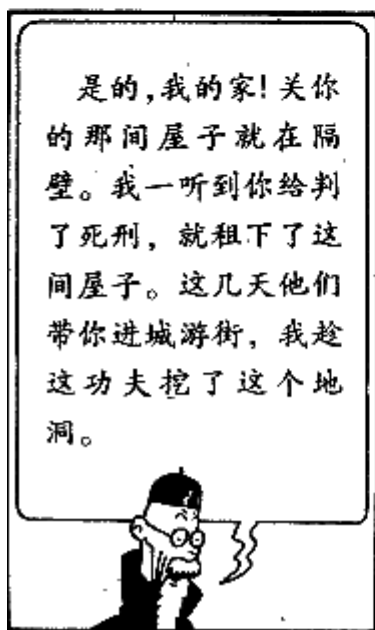 是的,我的家!关你
的那间屋子就在隔
壁。我一听到你给判
了死刑，就租下了这
间屋子。这几天他们
带你进城游街，我趁
这功夫挖了这个地
洞。